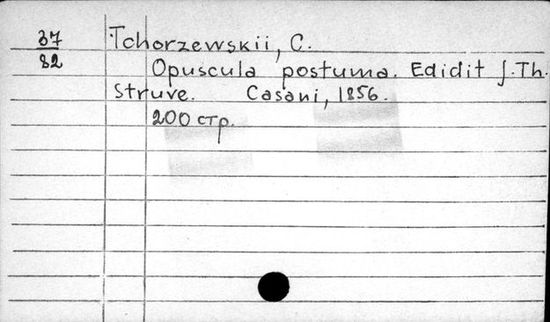 37
82
Tchorzewskii, C.
Opuscula postuma. Edidit J. Th.
Struve. Casani, 1856.
200 стр.